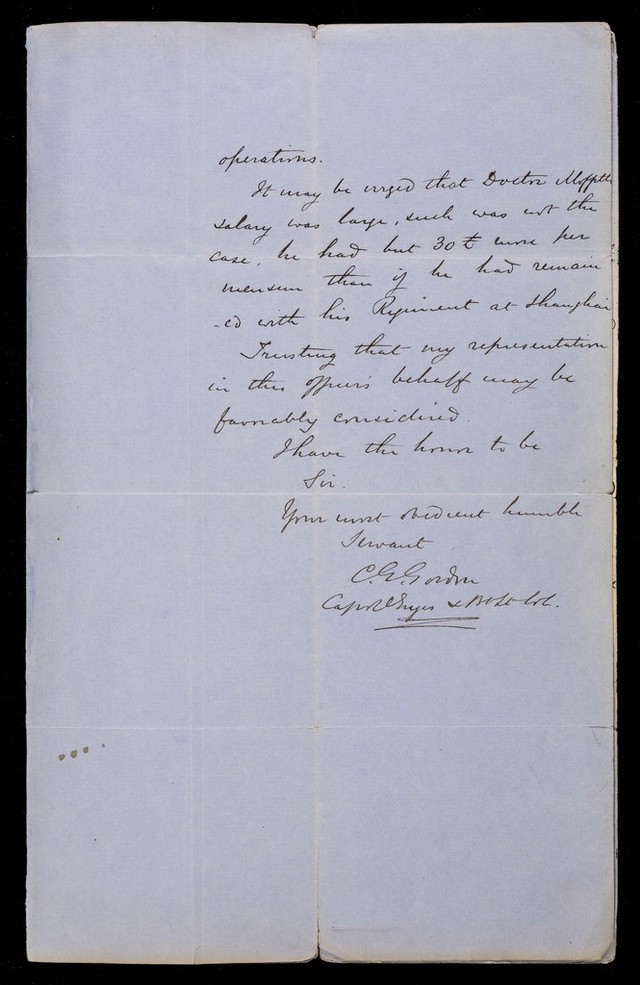 operations.
It may be urged that Doctor Moffitts
salary was large, such was not the
case, he had but 30 £ more per
mensem than if he had remain
-ed with his Regiment at Shanghai
Trusting that my representation
in this officers behalf may be
favorably considered.
I have the honor to be
Sir.
Your most obedient humble
Servant
C.G. Gordon
Capt R Engrs & Bt Lt Col.